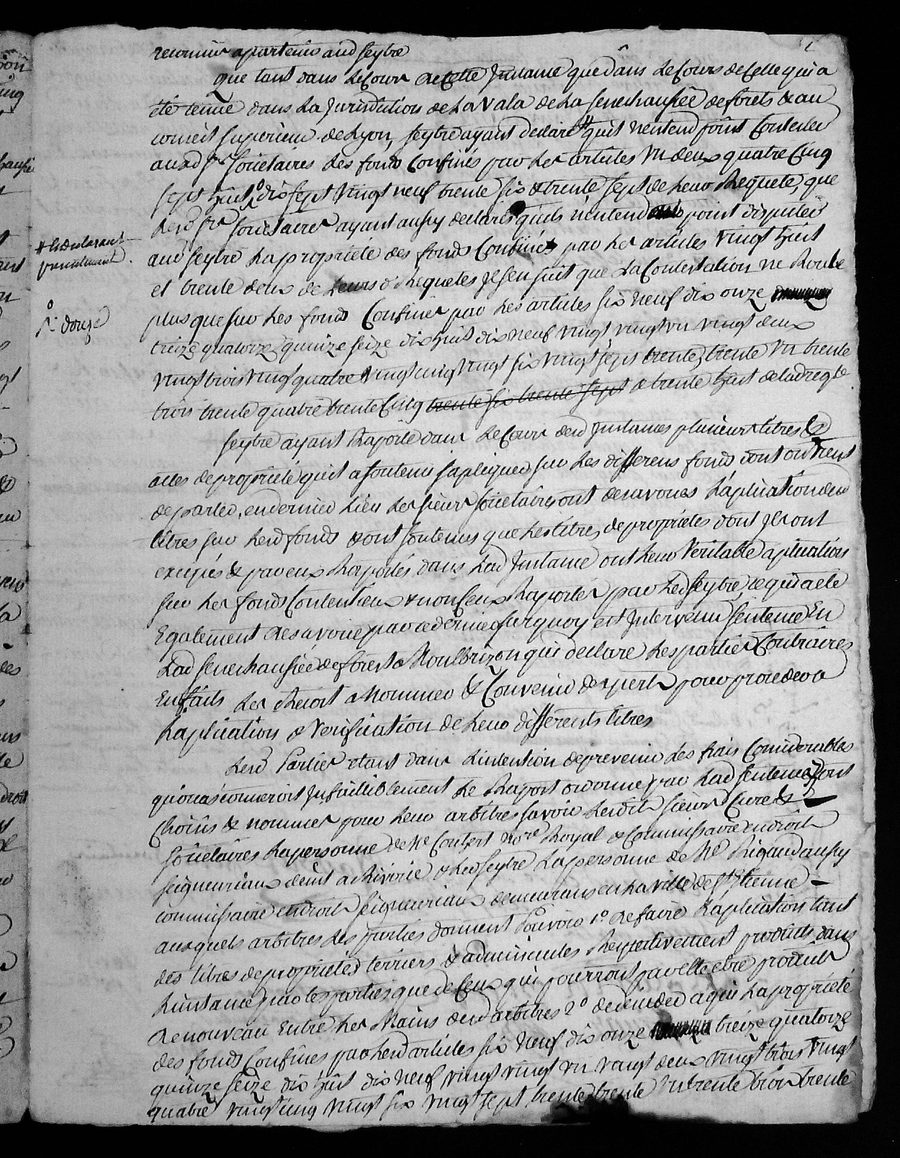 apartenir aud seytre
que tant dans le cours de cette Instance que dans le cours de celle qui a
été tenue dans la Jurisdiction de Lavala de la senechaussée de forets & au
conseil superieur de Lyon, seytre ayant declaré quil nentend point Contester
auxd. srs societaires les fonds Confinés par les articles un deux quatre cinq
sept huit dix sept vingt neuf trente six & trente sept de leur Requete, que
lesd. srs societaires ayant aussy declaré quils n'entendent point disputer
aud seytre la proprieté des fonds Confinés par les articles vingt huit
et trente deux de leurs d. Requetes Il sen suit que la Contestation ne Roule
plus que sur les fonds Confinés par les articles six neuf dix onze
treize quatorze quinze seize dix huit dix neuf vingt vingt un vingt deux
vingt trois vingt quatre vingt cinq vingt six vingt sept trente, trente un trente
trois trente quatre trente cinq trente six trente sept & trente huit de lad reqte
p. douze
seytre ayant Raporté dans le cours desd Instances plusieurs titres &
actes de proprieté quil a soutenu sapliquer sur les differens fonds dont on vient
de parler, en dernier lieu les sieurs societaires ont desavoué laplication desd
titres sur lesd fonds & ont soutenus que les titres de proprietés dont Ils ont
excipés & par eux Raportés dans lad Instance ont leur veritable aplication
sur les fonds Contentieux & non ceux Raportés par led seytre ce qui a eté
Egalement desavoué par ce dernier surquoy est Intervenu sentence En
lad senechaussée de forest a Montbrizon qui declare les parties Contraires
En faits les Renvoit a Nommer & Convenir dexperts pour proceder a
Laplication & Verification de leurs differents titres
Lesd Parties etant dans Lintention de prevenir les frais Considerables
quoccasionneroit Infailliblement le Raport ordonné par lad sentence, ont
Choisis & nommés pour leurs arbitres savoir lesdits sieurs Curé &
societaires la personne de Me Coutert Nore Royal & Commissaire en droits
seigneuriaux & led seytre La personne de Me Rigaud aussy
commissaire en droits seigneuriaux demeurans en la ville de st Etienne
auxquels arbitres les parties donnent Pouvoir 1º de faire l'aplication tant
des titres de proprieté terriers & adminicules Respectivement produits dans
linstance par les parties que de ceux qui pourront par elles etre produits
de nouveau Entre les Mains desd arbitres 2º de decider a qui la proprieté
des fonds Confinés par lesd articles six neuf dix onze treize quatorze
quinze seize dix huit dix neuf vingt vingt un vingt deux vingt trois vingt
quatre vingt cinq vingt six vingt sept trente trente un trente trois trente